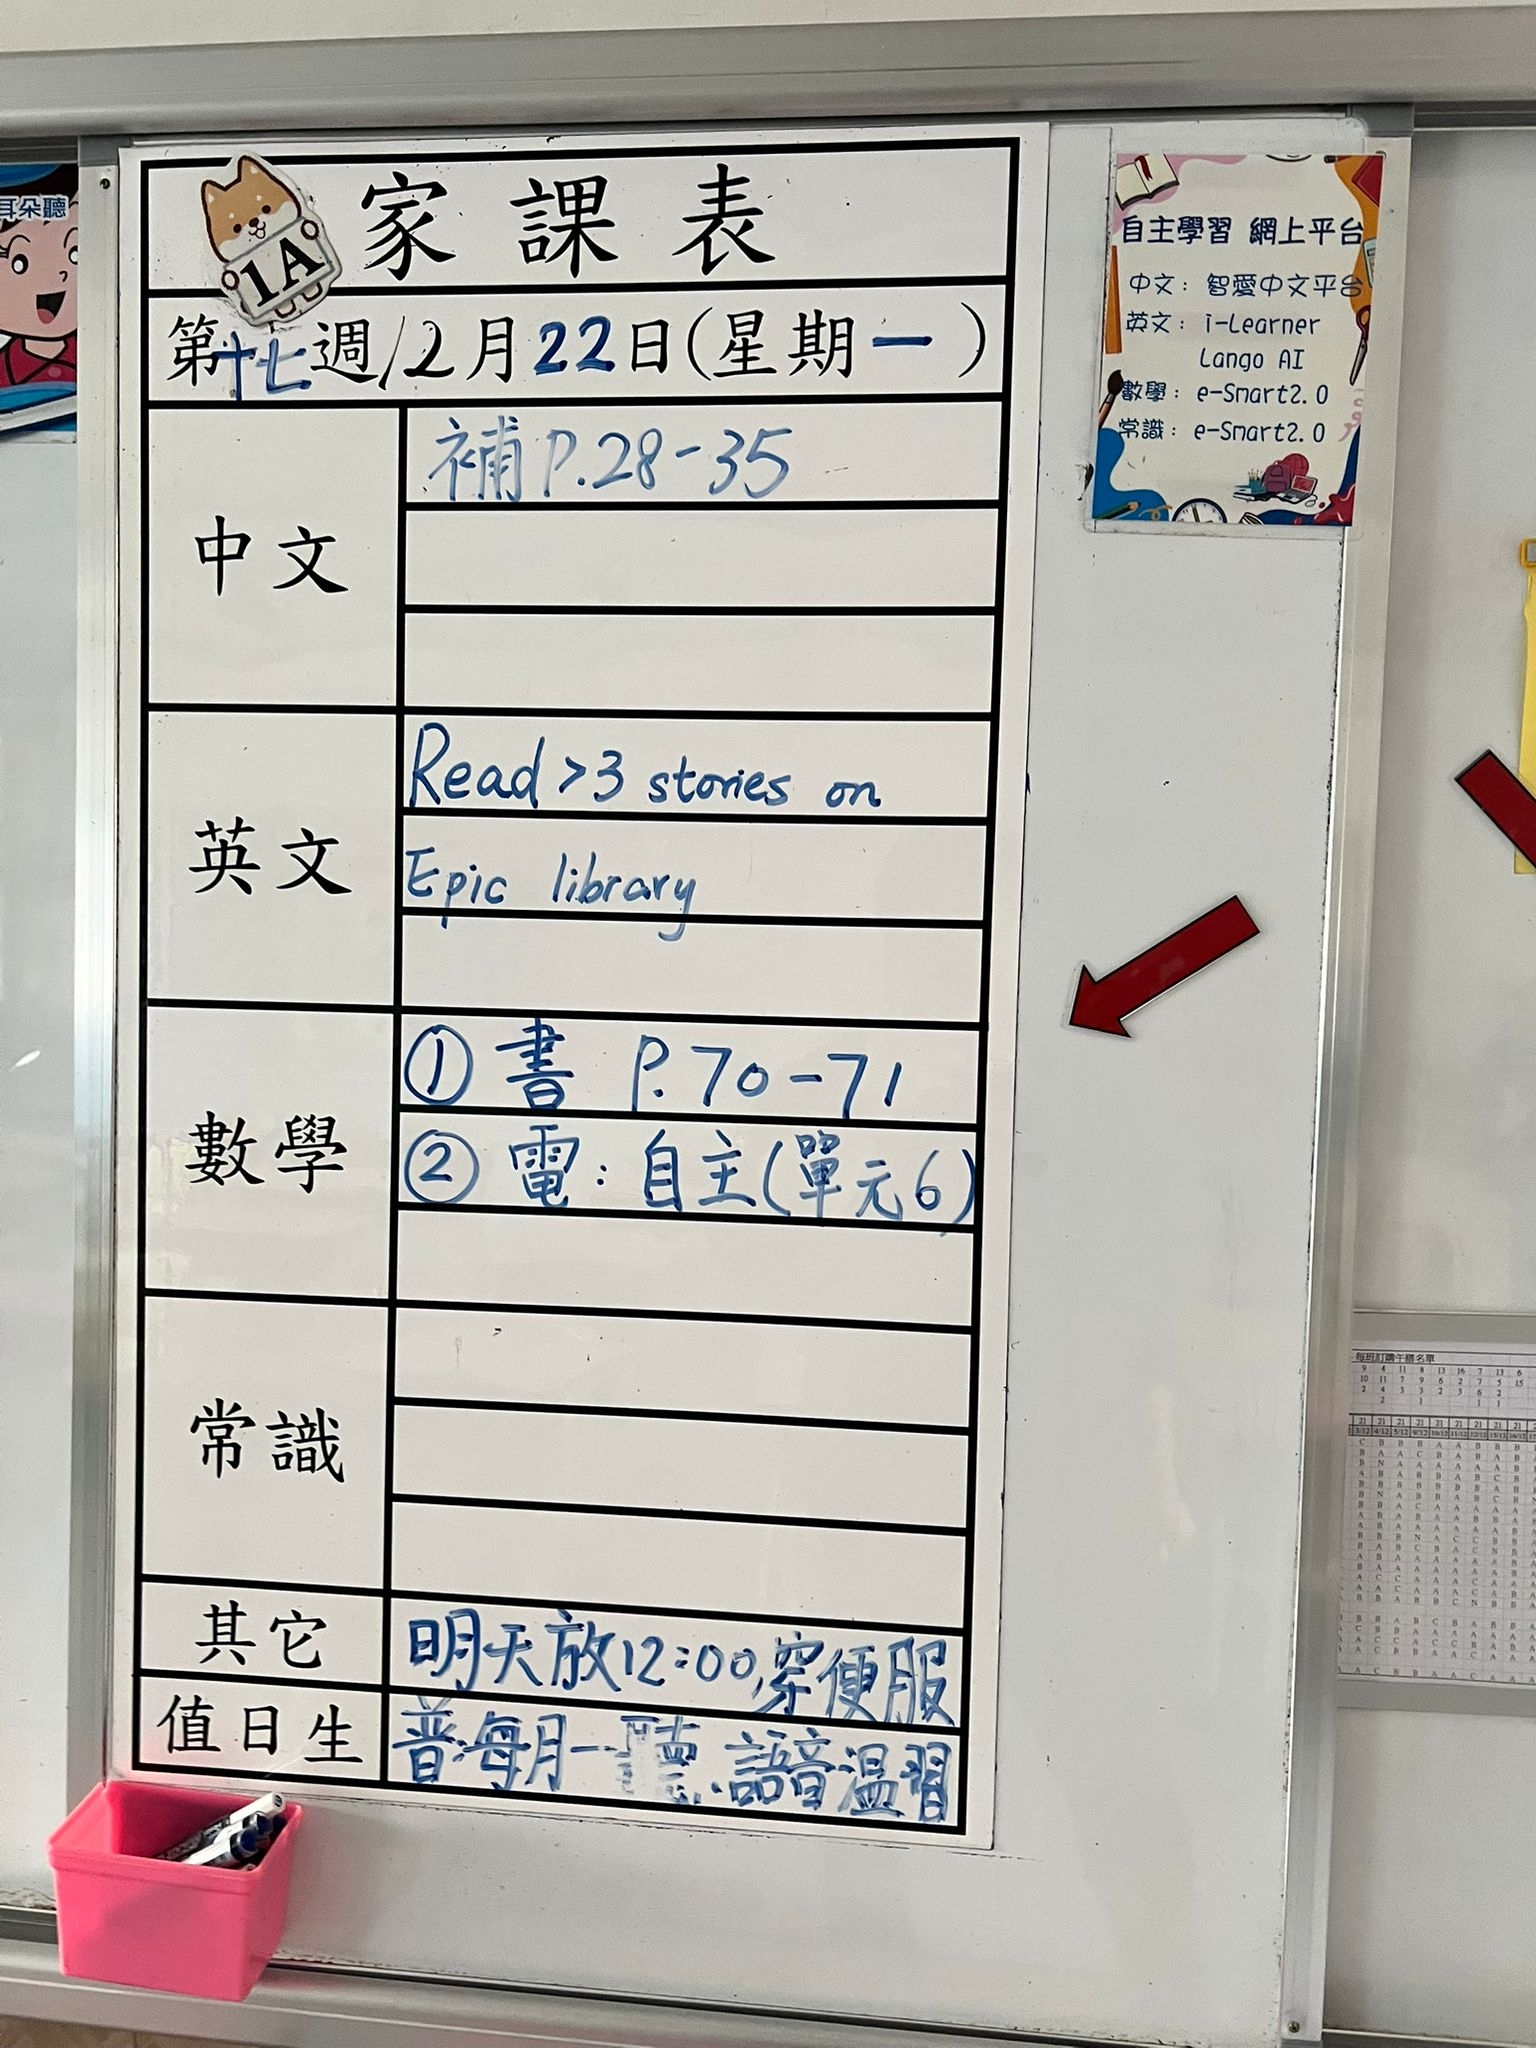 耳朵聽
1A
家課表
第十七週 12月22日(星期一)
中文
補 P.28-35
英文
Read >3 stories on
Epic library
數學
① 書 P.70-71
② 電：自主(單元6)
常識
其它
明天放12:00,穿便服
值日生
普:每月一聽、語音溫習
自主學習 網上平台
中文：智愛中文平台
英文：i-Learner
Lango AI
數學：e-Smart2.0
常識：e-Smart2.0
每班訂購午膳名單